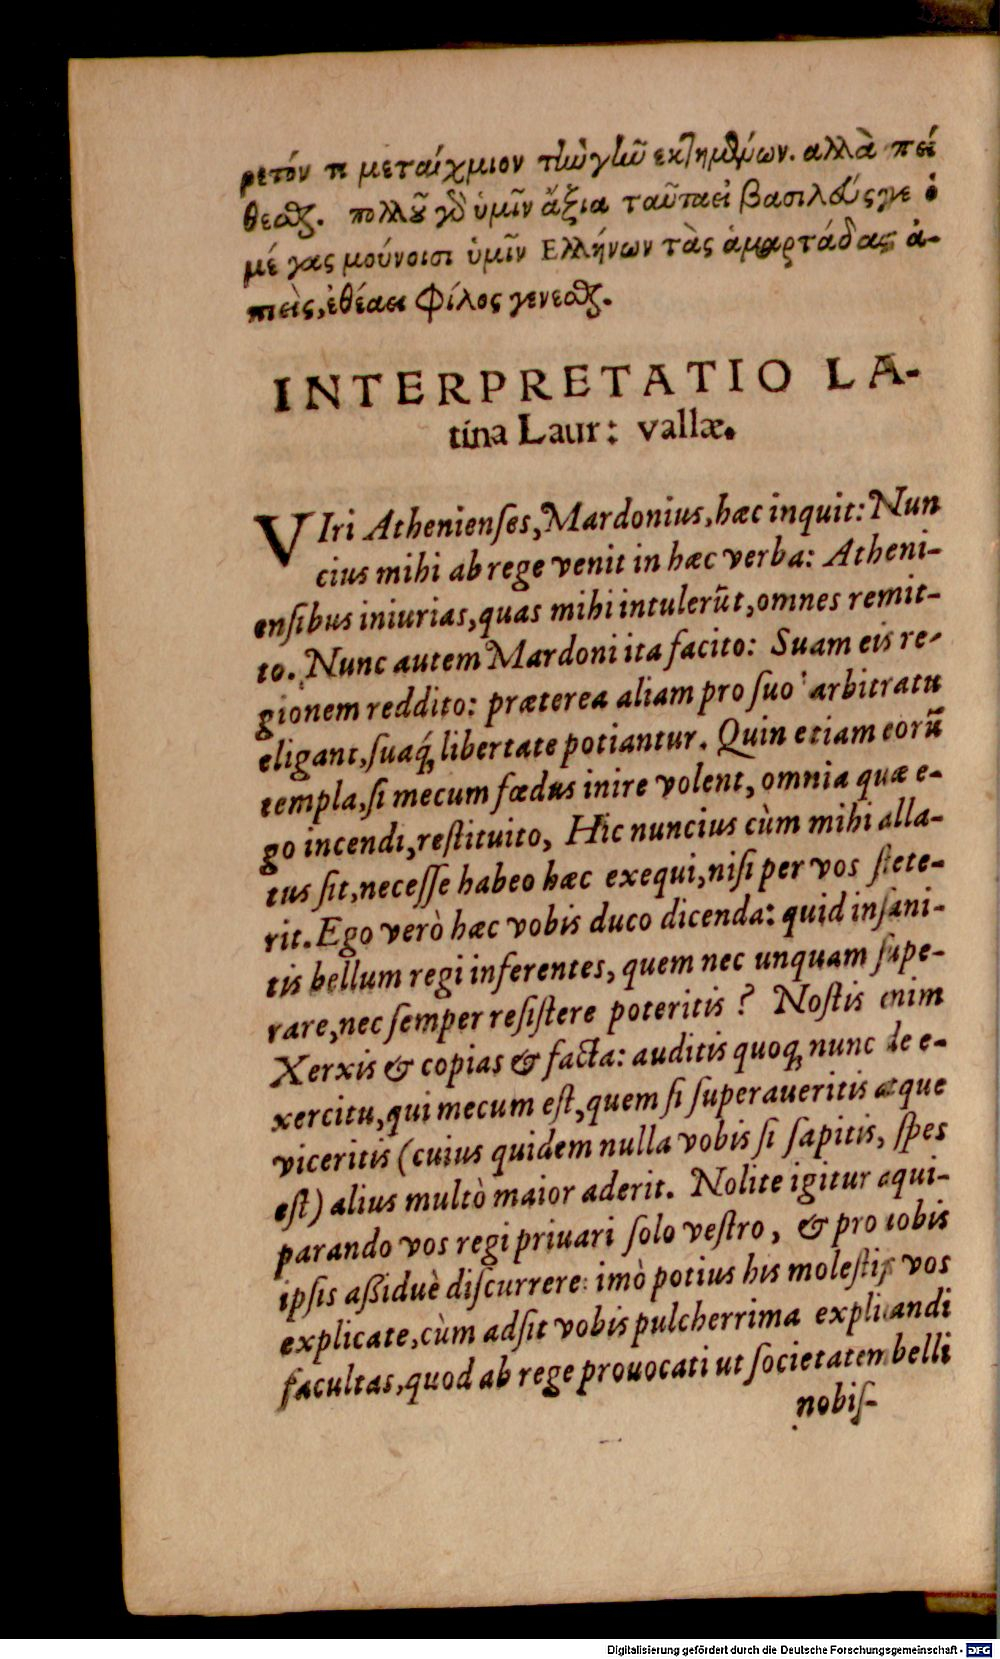 ρετόν τι μεταίχμιον τὴν γῆν εκτημένων. αλλὰ πεί
θεσθε. πολλοῦ γὰρ ὑμῖν ἄξια ταῦτα εἰ βασιλεύς γε ὁ
μέγας μούνοισι ὑμῖν Ελλήνων τὰς ἁμαρτάδας ἀ-
πιεὶς, ἐθέλει φίλος γενεσθ.
INTERPRETATIO LA-
tina Laur: vallæ.
VIri Athenienses, Mardonius, hæc inquit: Nun
cius mihi ab rege venit in hæc verba: Atheni-
ensibus iniurias, quas mihi intulerũt, omnes remit-
to. Nunc autem Mardoni ita facito: Suam eis re-
gionem reddito: præterea aliam pro suo arbitratu
eligant, suaq́; libertate potiantur. Quin etiam eorũ
templa, si mecum fœdus inire volent, omnia quæ e-
go incendi, restituito, Hic nuncius cùm mihi alla-
tus sit, necesse habeo hæc exequi, nisi per vos stete-
rit. Ego verò hæc vobis duco dicenda: quid insani-
tis bellum regi inferentes, quem nec unquam supe-
rare, nec semper resistere poteritis? Nostis enim
Xerxis & copias & facta: auditis quoq; nunc de e-
xercitu, qui mecum est, quem si superaueritis atque
viceritis (cuius quidem nulla vobis si sapitis, spes
est) alius multò maior aderit. Nolite igitur æqui-
parando vos regi priuari solo vestro, & pro uobis
ipsis aßiduè discurrere: imò potius his molestijs vos
explicate, cùm adsit vobis pulcherrima explicandi
facultas, quod ab rege prouocati ut societatem belli
nobis-
Digitalisierung gefördert durch die Deutsche Forschungsgemeinschaft - DFG